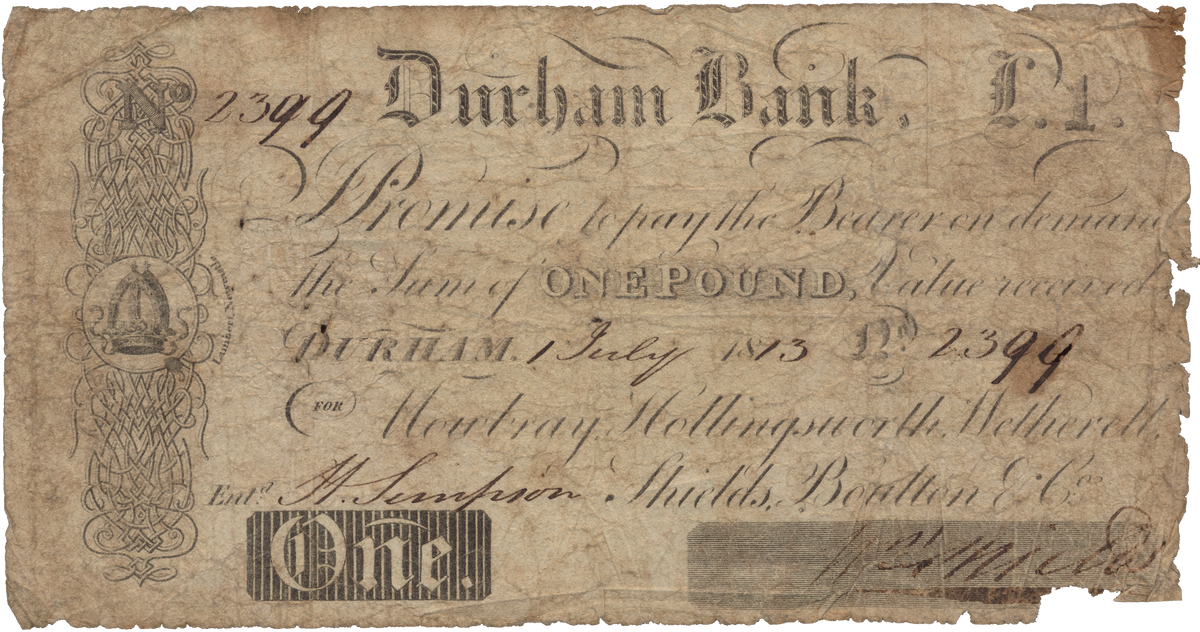 No 2399 Durham Bank. £.1.
I Promise to pay the Bearer on demand
the Sum of ONE POUND, Value received
DURHAM, 1 July 1813 No. 2399
FOR Mowbray, Hollingsworth, Wetherell,
Entd H. Simpson Shields, Boulton & Cos
One.
Lambert